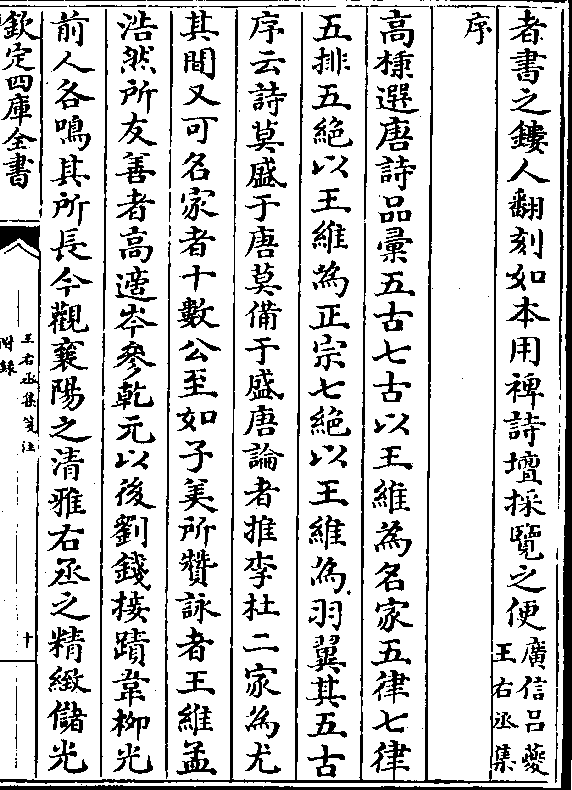 者書之鏤人翻刻如本用裨詩壇採覽之便廣信吕夔王右丞集
序
高棅選唐詩品彙五古七古以王維為名家五律七律
五排五絶以王維為正宗七絶以王維為羽翼其五古
序云詩莫盛于唐莫備于盛唐論者推李杜二家為尤
其間又可名家者十數公至如子美所贊詠者王維孟
浩然所友善者高適岑參乾元以後劉錢接蹟韋柳光
前人各鳴其所長今觀襄陽之清雅右丞之精緻儲光
欽定四庫全書
王右丞集箋注
附録
十